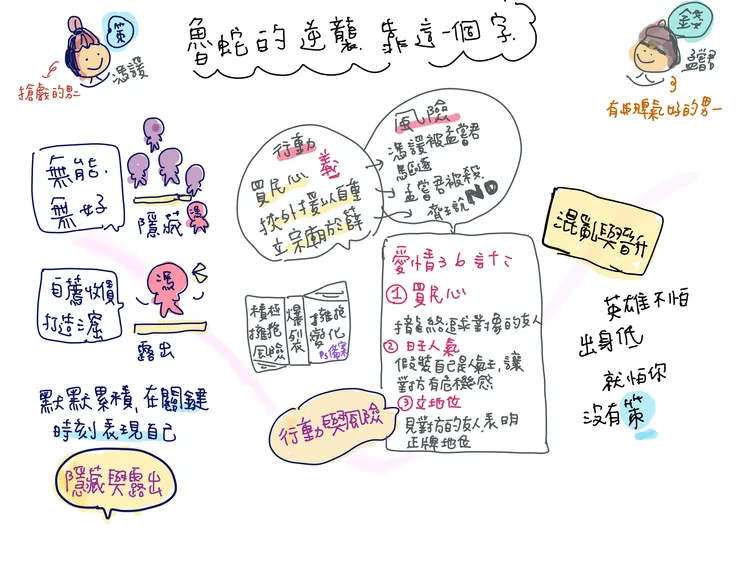 魯蛇的逆襲 靠這一個字
策
馮諼
搶戲的男二
錢
孟嘗君
有世脾氣好的男一
無能.
無好
隱藏
馮
自薦收債
打造三窟
馮
露出
默默累積,在關鍵
時刻表現自己
隱藏與露出
行動
義
買民心
挾外援以自重
立宗廟於薛
風險
馮諼被孟嘗君
驅逐
孟嘗君被殺.
齊王說NO
積極
擁抱
風險
爆
列
衣
擁抱
變化
行動與風險
愛情36計:
①買民心
追求對象的友人
②日王人氣
假裝自己是人氣王,讓
對方有危機感
③立地位
見對方的友人,表明
正牌地位
混亂與晉升
英雄不怕
出身低
就怕你
沒有策